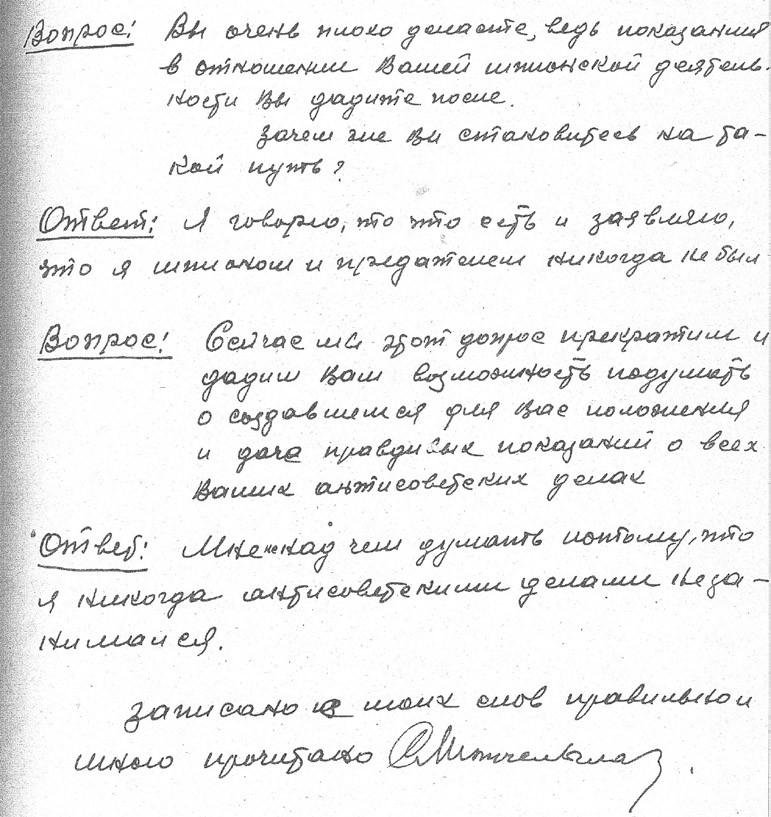 Вопрос: Вы очень плохо делаете, ведь показания
в отношении Вашей шпионской деятель-
ности Вы дадите после.
Зачем же Вы становитесь на та-
кой путь?
Ответ: Я говорю, то что есть и заявляю,
что я шпионом и предателем никогда не был
Вопрос: Сейчас мы этот допрос прекратим и
дадим Вам возможность подумать
о создавшемся для Вас положения
и дача правдивых показаний о всех
Ваших антисоветских делах
Ответ: Мне над чем думать потому, что
я никогда антисоветскими делами не за-
нимался.
Записано с моих слов правильно и
мною прочитано